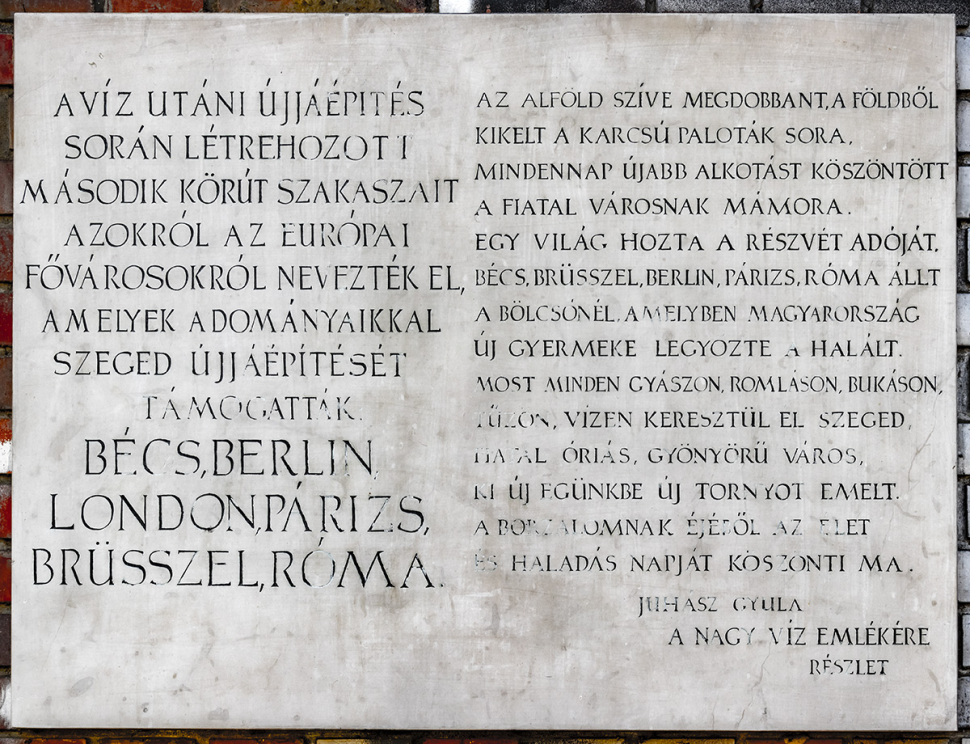 A VÍZ UTÁNI ÚJJÁÉPITÉS
SORÁN LÉTREHOZOTT
MÁSODIK KÖRÚT SZAKASZAIT
AZOKRÓL AZ EURÓPAI
FŐVÁROSOKRÓL NEVEZTÉK EL,
AMELYEK ADOMÁNYAIKKAL
SZEGED ÚJJÁÉPÍTÉSÉT
TÁMOGATTÁK.
BÉCS, BERLIN,
LONDON, PÁRIZS,
BRÜSSZEL, RÓMA.
AZ ALFÖLD SZÍVE MEGDOBBANT, A FÖLDBŐL
KIKELT A KARCSÚ PALOTÁK SORA,
MINDENNAP ÚJABB ALKOTÁST KÖSZÖNTÖTT
A FIATAL VÁROSNAK MÁMORA.
EGY VILÁG HOZTA A RÉSZVÉT ADÓJÁT,
BÉCS, BRÜSSZEL, BERLIN, PÁRIZS, RÓMA ÁLLT
A BÖLCSÓNÉL, AMELYBEN MAGYARORSZÁG
ÚJ GYERMEKE LEGYOZTE A HALÁLT.
MOST MINDEN GYÁSZON, ROMLÁSON, BUKÁSON,
TŰZÖN, VÍZEN KERESZTÜL ÉL SZEGED,
FIATAL ÓRIÁS, GYÖNYÖRŰ VÁROS,
KI ÚJ EGÜNKBE ÚJ TORNYOT EMELT.
A BORZALOMNAK ÉJÉBŐL AZ ÉLET
ÉS HALADÁS NAPJÁT KÖSZÖNTI MA.
JUHÁSZ GYULA
A NAGY VÍZ EMLÉKÉRE
RÉSZLET